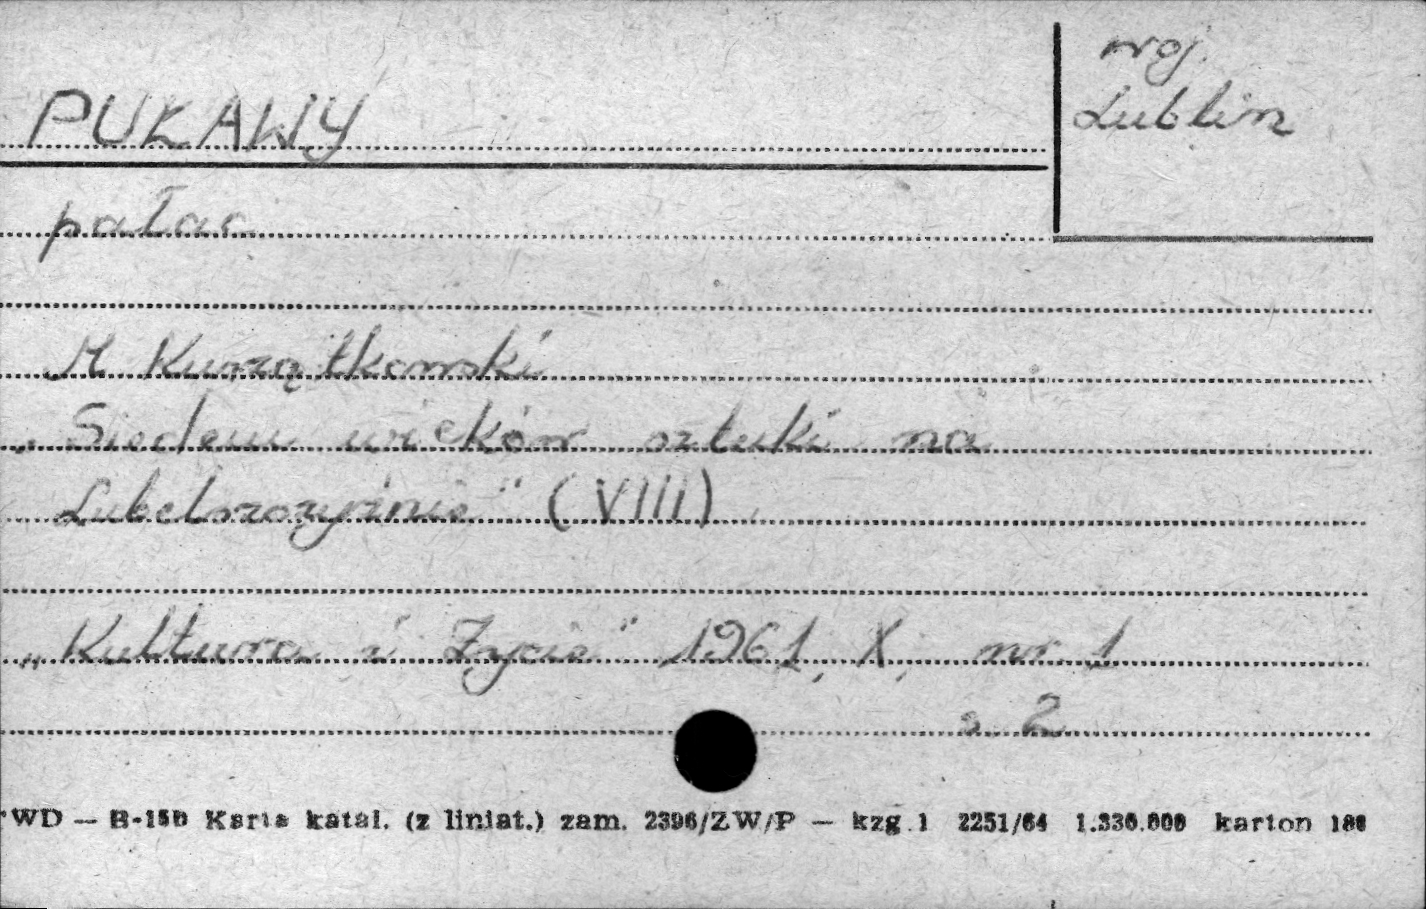 PUŁAWY
woj.
Lublin
pałac
M Kurzątkowski
„Siedem wieków sztuki na
Lubelszczyźnie" (VIII)
„Kultura i Życie" 1961, X, nr 1
s. 2
WD — B-15b Karta katal. (z liniat.) zam. 2396/ZW/P — kzg. 1 2251/64 1.330.000 karton